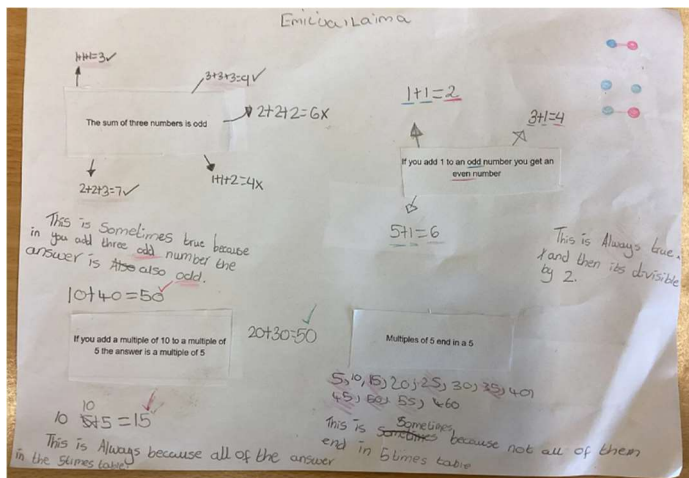 Emilija, Laima
1+1+1=3✓
3+3+3=9✓
The sum of three numbers is odd
2+2+2=6x
2+2+3=7✓
1+1+2=4x
This is Sometimes true because
in you add three odd number the
answer is also odd.
1+1=2
3+1=4
If you add 1 to an odd number you get an
even number
5+1=6
This is Always true.
and then its divisible
by 2.
10+40=50✓
If you add a multiple of 10 to a multiple of
5 the answer is a multiple of 5
20+30=50✓
10
10 5+5=15✓
This is Always because all of the answer
in the 5times table
Multiples of 5 end in a 5
5, 10, 15, 20, 25, 30, 35, 40,
45, 50, 55, 60
This is Sometimes because not all of them
end in 5times table